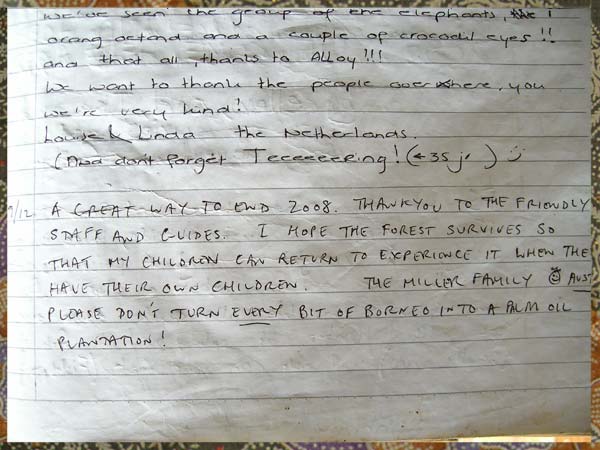 we've seen the group of the elephants, 1
orang oetond and a couple of crocodil eyes!!
and that all, thanks to ALLoy!!!
We want to thank the people over where, you
we're very kind!
Louise & Linda the Netherlands.
(And dont forget Teceeeeeping! (←35 j. )
/12 A GREAT WAY TO END 2008. THANKYOU TO THE FRIENDLY
STAFF AND GUIDES. I HOPE THE FOREST SURVIVES SO
THAT MY CHILDREN CAN RETURN TO EXPERIENCE IT WHEN THE
HAVE THEIR OWN CHILDREN. THE MILLER FAMILY AUST
PLEASE DON'T TURN EVERY BIT OF BORNEO INTO A PALM OIL
PLANTATION!